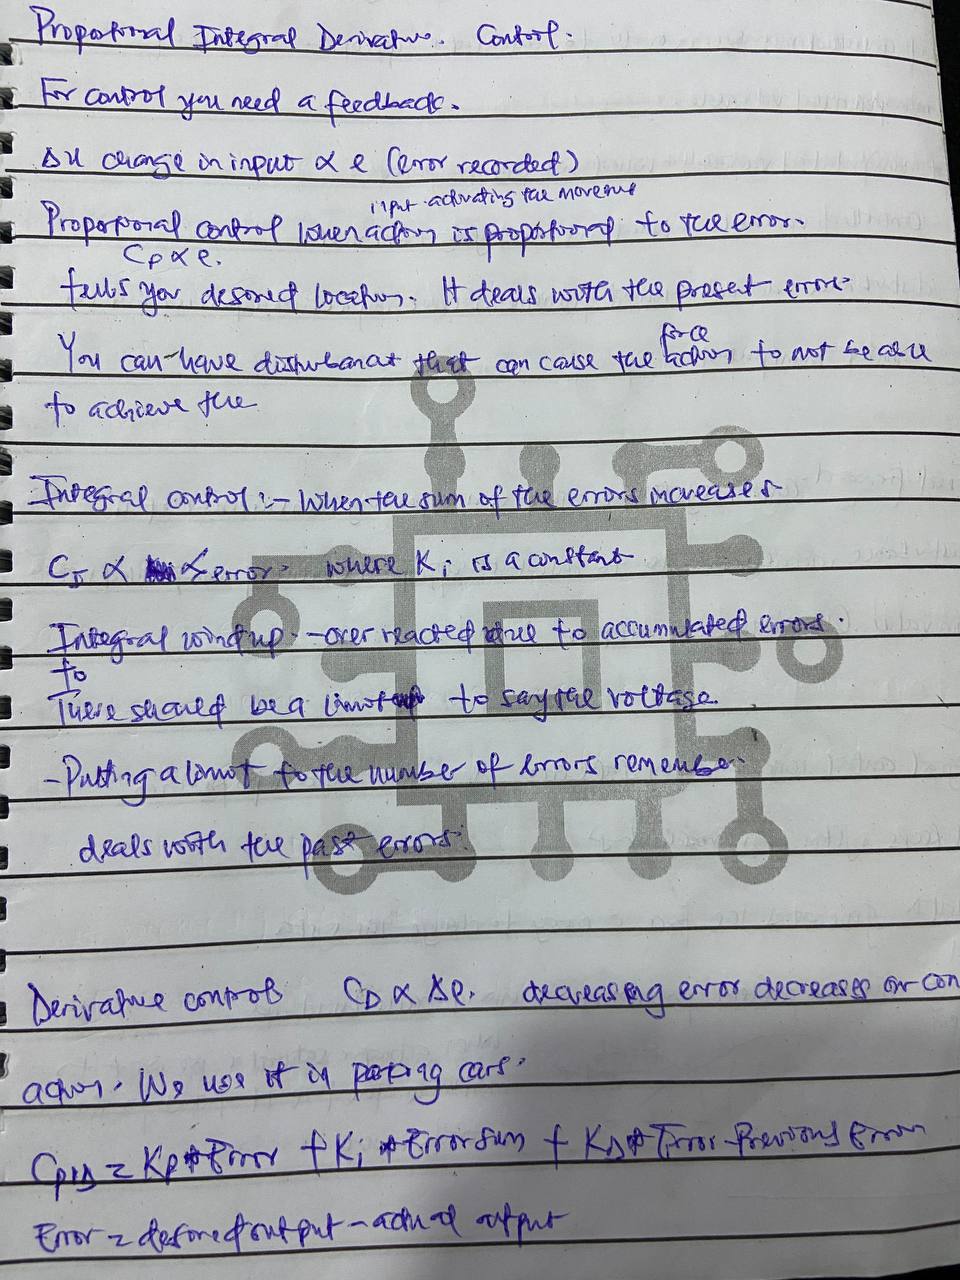 Proportional Integral Derivative. Control.
For control you need a feedback.
Δu change in input ∝ e (error recorded)
input activating the movement
Proportional control when action is proportional to the error.
Cp ∝ e.
tells you desired location. It deals with the present error.
force
You can have disturbance that can cause the action to not be able
to achieve the
Integral control :- When the sum of the errors increases
CI ∝ error. where Ki is a constant
Integral windup - over reacted due to accumulated errors.
to
There should be a limit to say the voltage.
- Putting a limit to the number of errors remember
deals with the past errors.
Derivative control CD ∝ Δe. decreasing error decreases or con
action. We use it in parking cars.
CPID = KP * Error + Ki * Error sum + KD * Error - Previous Error
Error = desired output - actual output